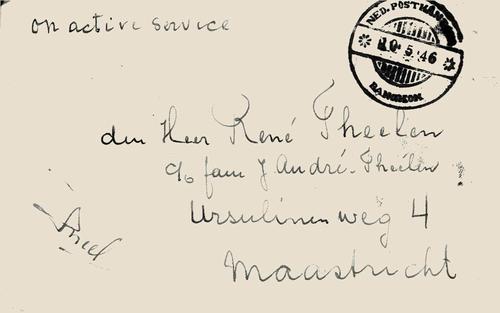 on active service
NED. POSTKANTOOR
10.5.46
BANGKOK
den Heer René Theelen
c/o fam J André-Theelen
Ursulinenweg 4
Maastricht